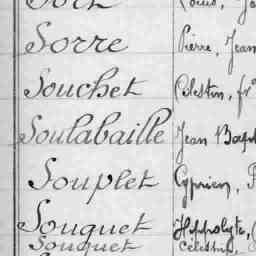 Sorre Pierre, Jean
Souchet Célestin, frs
Soulabaille Jean Bapt
Souplet Cyprien,
Souquet Hippolyte,
Souquet Célestin,